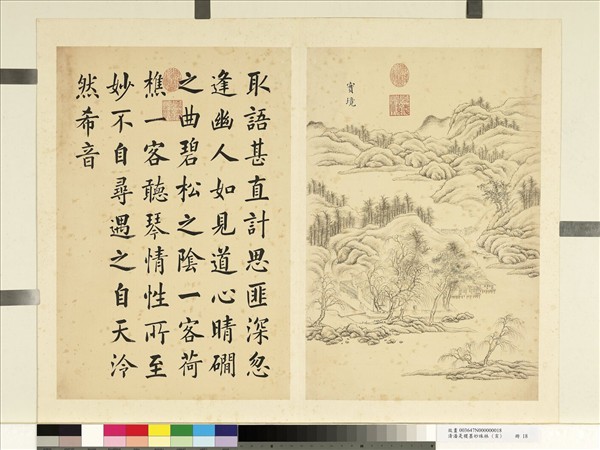 實境
取語甚直計思匪深忽
逢幽人如見道心晴磵
之曲碧松之陰一客荷
樵一客聽琴情性所至
妙不自尋遇之自天泠
然希音
故畫 003647N000000018
墨妙珠林 18